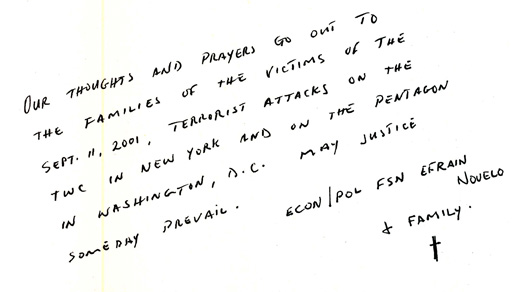 OUR THOUGHTS AND PRAYERS GO OUT TO
THE FAMILIES OF THE VICTIMS OF THE
SEPT. 11, 2001, TERRORIST ATTACKS ON THE
TWC IN NEW YORK AND ON THE PENTAGON
IN WASHINGTON, D.C. MAY JUSTICE
SOMEDAY PREVAIL. ECON/POL FSN EFRAIN
NOVELO
& FAMILY.